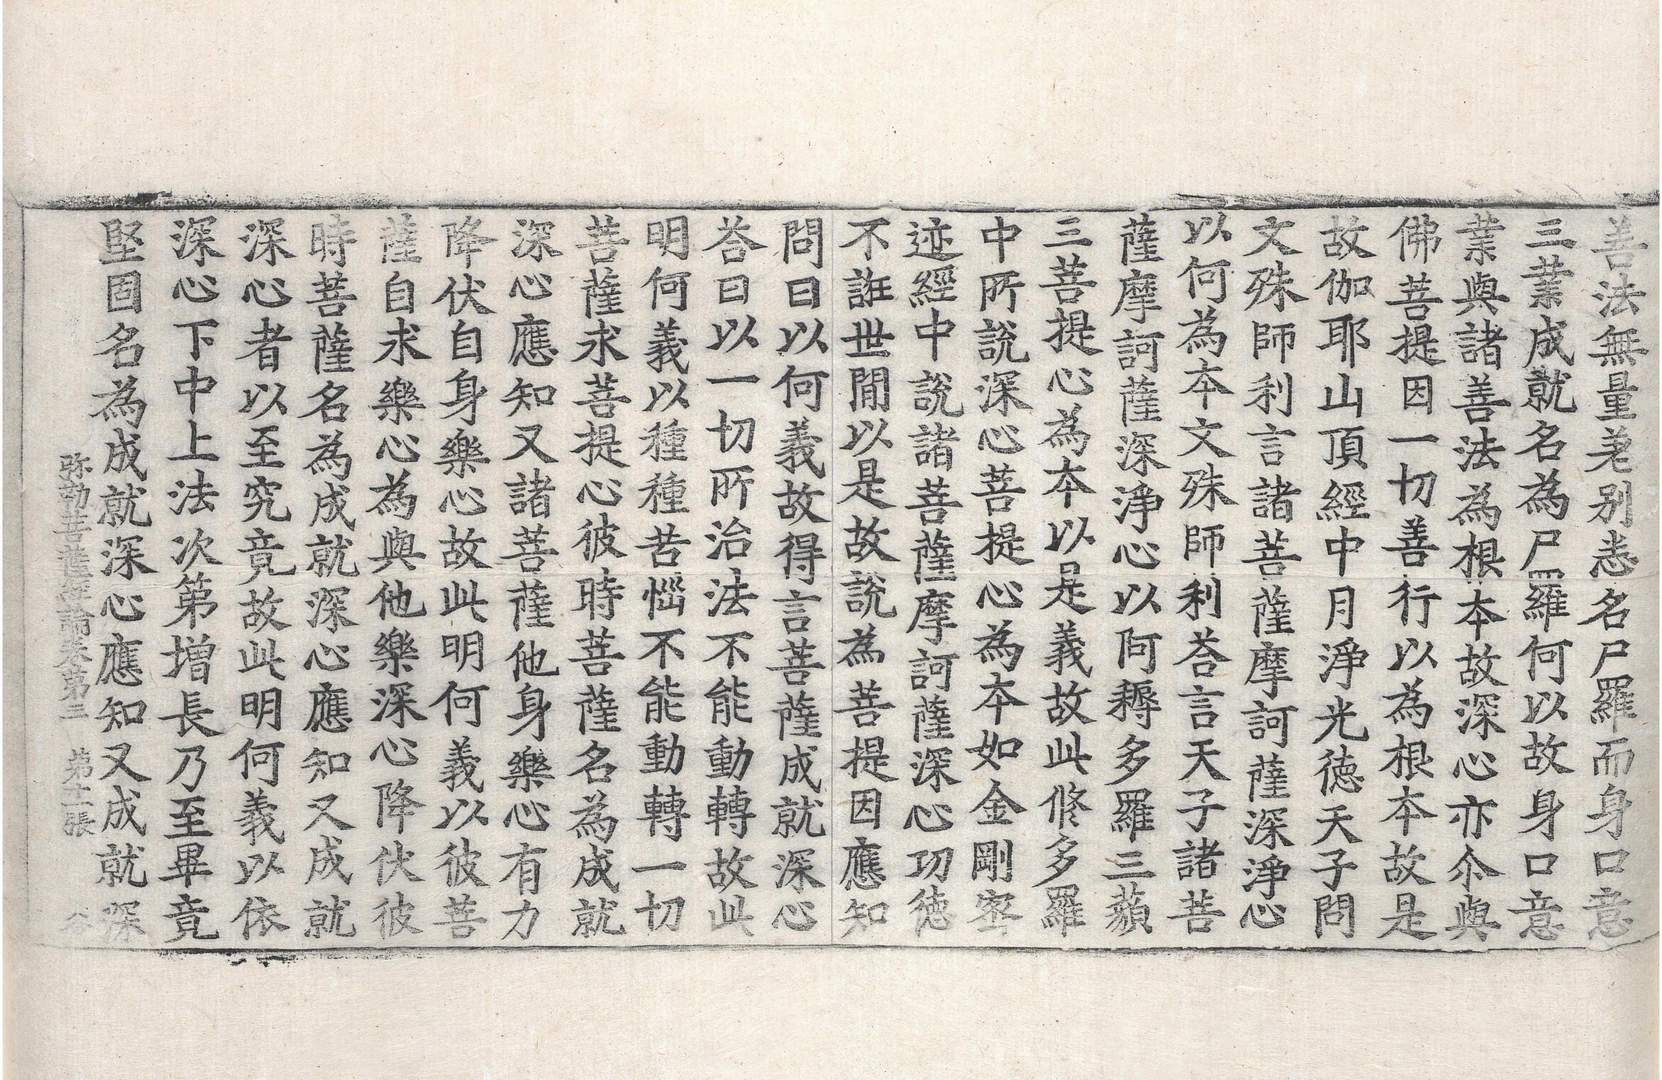 善法無量差别悉名尸羅而身口意
三業成就名為尸羅何以故身口意
業與諸善法為根本故深心亦尒與
佛菩提因一切善行以為根本故是
故伽耶山頂經中月淨光德天子問
文殊師利言諸菩薩摩訶薩深淨心
以何為本文殊師利荅言天子諸菩
薩摩訶薩深淨心以阿耨多羅三藐
三菩提心為本以是義故此修多羅
中所說深心菩提心為本如金剛密
迹經中說諸菩薩摩訶薩深心功德
不誑世間以是故說為菩提因應知
問曰以何義故得言菩薩成就深心
荅曰以一切所治法不能動轉故此
明何義以種種苦惱不能動轉一切
菩薩求菩提心彼時菩薩名為成就
深心應知又諸菩薩他身樂心有力
降伏自身樂心故此明何義以彼菩
薩自求樂心為與他樂深心降伏彼
時菩薩名為成就深心應知又成就
深心者以至究竟故此明何義以依
深心下中上法次第增長乃至畢竟
堅固名為成就深心應知又成就深
弥勒菩薩經論卷第三 第十二張 㳄